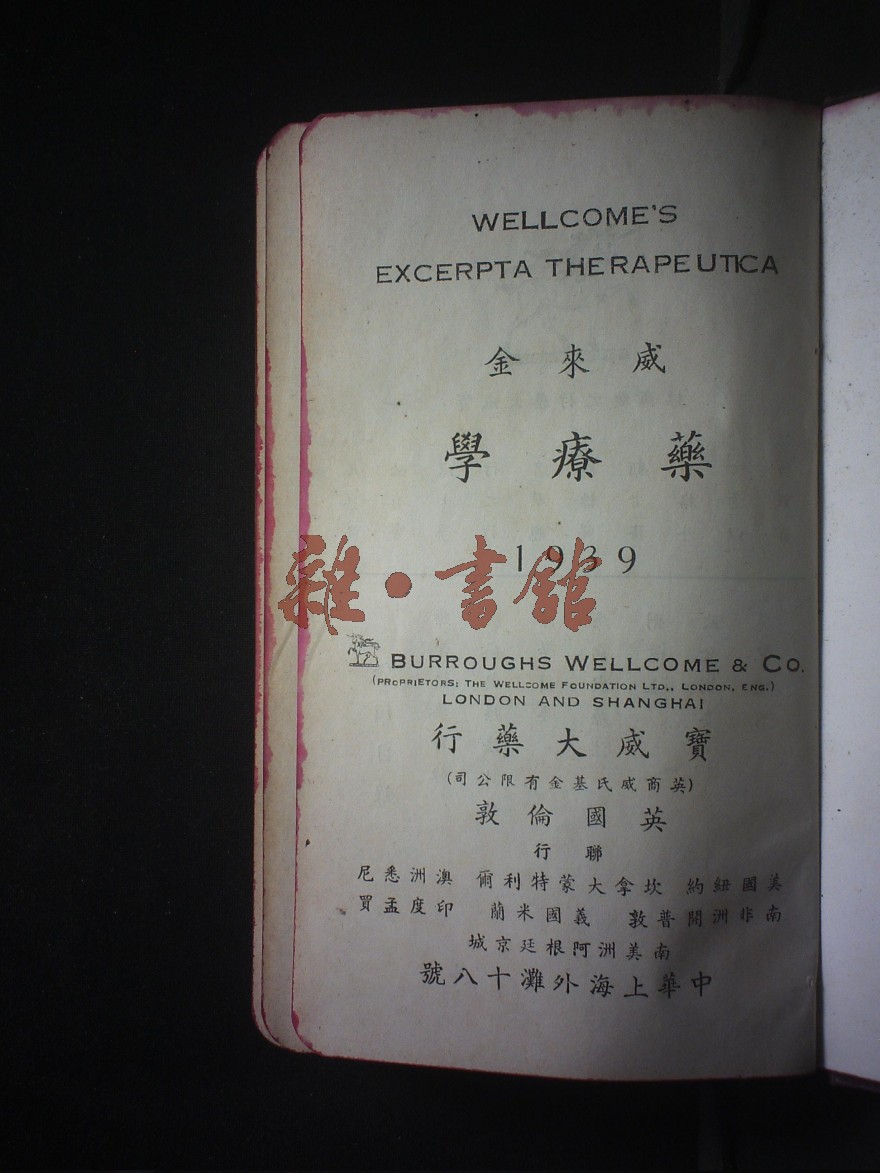 WELLCOME'S
EXCERPTA THERAPEUTICA
威來金
藥療學
1939
雜·書館
BURROUGHS WELLCOME & CO.
(PROPRIETORS: THE WELLCOME FOUNDATION LTD., LONDON, ENG.)
LONDON AND SHANGHAI
寶威大藥行
(英商威氏基金有限公司)
英國倫敦
聯行
美國紐約 坎拿大蒙特利爾 澳洲悉尼
南非洲開普敦 義國米蘭 印度孟買
南美洲阿根廷京城
中華上海外灘十八號